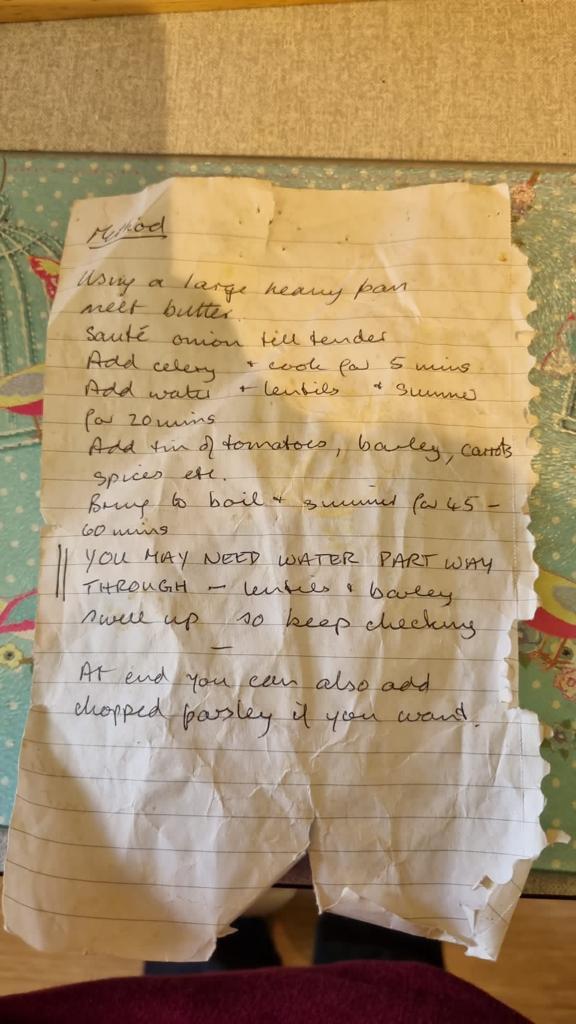 Method
Using a large heavy pan
melt butter.
Sauté onion till tender
Add celery + cook for 5 mins
Add water + lentils + simmer
for 20 mins
Add tin of tomatoes, barley, carrots
spices etc.
Bring to boil + simmer for 45 -
60 mins
YOU MAY NEED WATER PART WAY
THROUGH - lentils + barley
swell up so keep checking
—
At end you can also add
chopped parsley if you want.